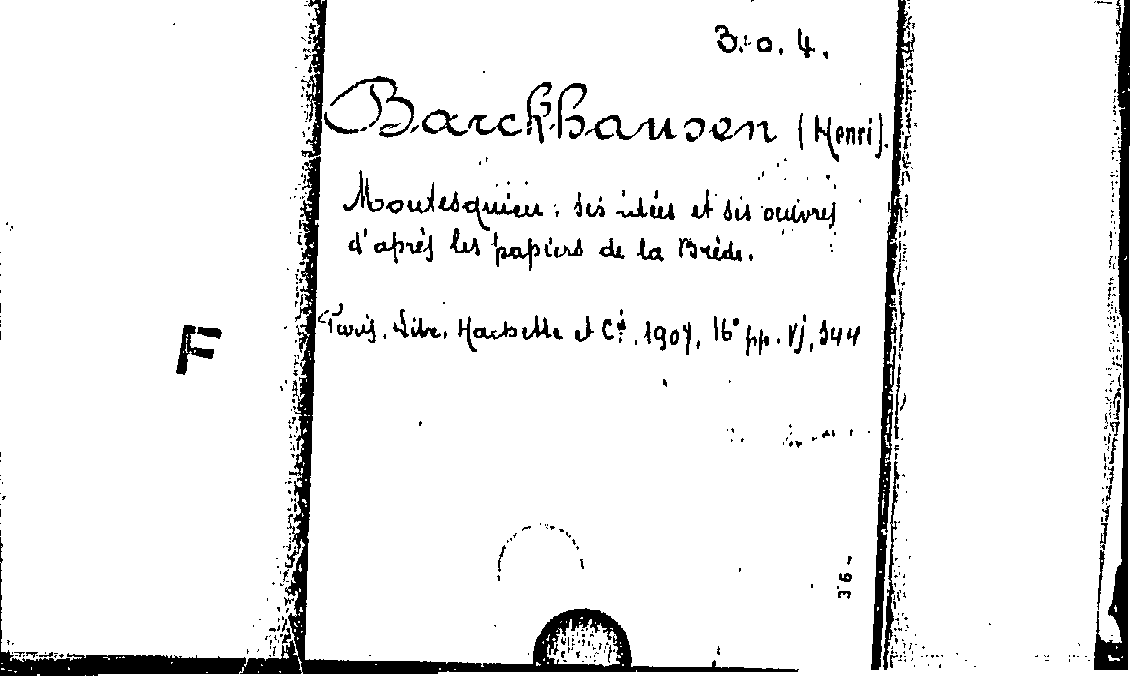 3.0.4.
Barckhausen (Henri).
Montesquieu : ses idées et ses œuvres
d'après les papiers de la Brède.
Paris, Libr. Hachette et Cie, 1907, 16° pp. VJ, 344
F
36-